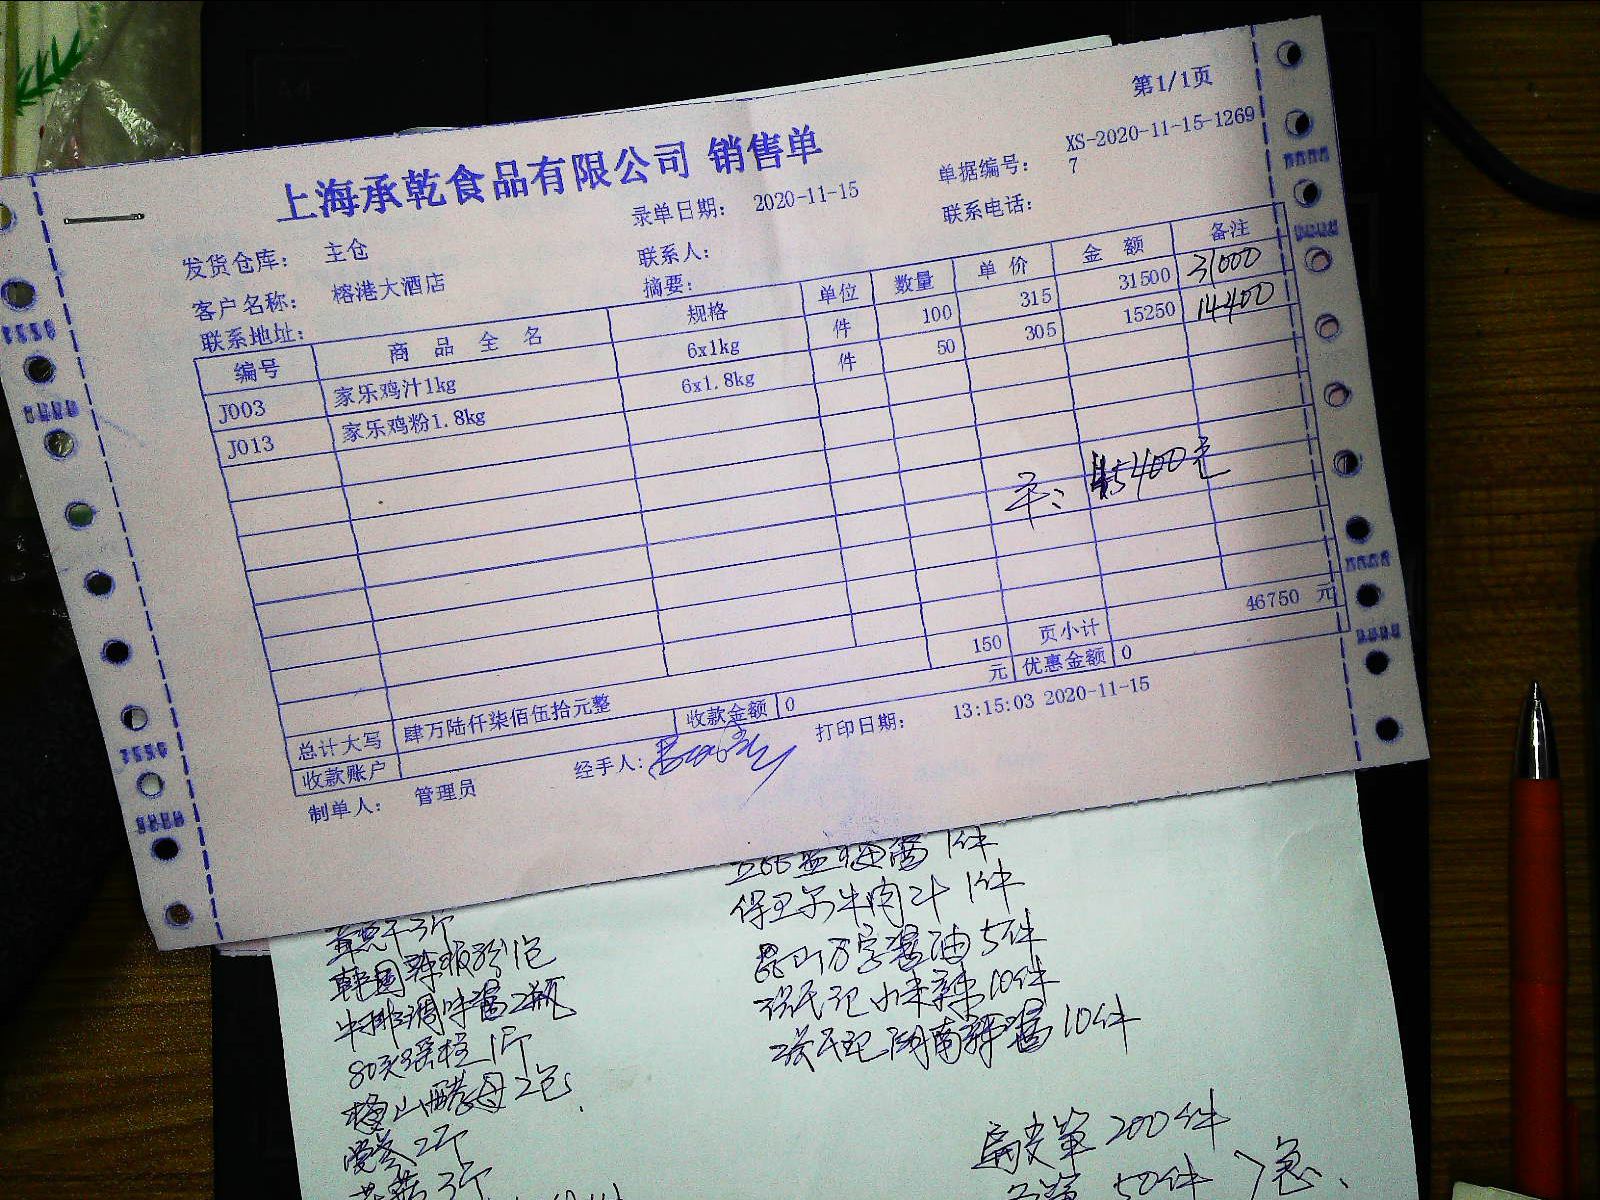 第1/1页
上海承乾食品有限公司 销售单
录单日期: 2020-11-15
单据编号: XS-2020-11-15-1269
7
发货仓库: 主仓
联系人:
联系电话:
客户名称: 榕港大酒店
摘要:
联系地址:
编号 商品全名 规格 单位 数量 单价 金额 备注
J003 家乐鸡汁1kg 6x1kg 件 100 315 31500 31000
J013 家乐鸡粉1.8kg 6x1.8kg 件 50 305 15250 14400
45400元
150 页小计 46750 元
总计大写 肆万陆仟柒佰伍拾元整 元 优惠金额 0
收款账户 收款金额 0
制单人: 管理员 经手人: 打印日期: 13:15:03 2020-11-15
1件
保卫尔牛肉汁 1件
昆山万字酱油 5件
小米辣 10件
湖南辣酱 10件
韩国辣椒粉1包
牛排调味酱2瓶
80头瑶柱1斤
2包
2斤
3斤
扁尖笋 200件
50件 急、